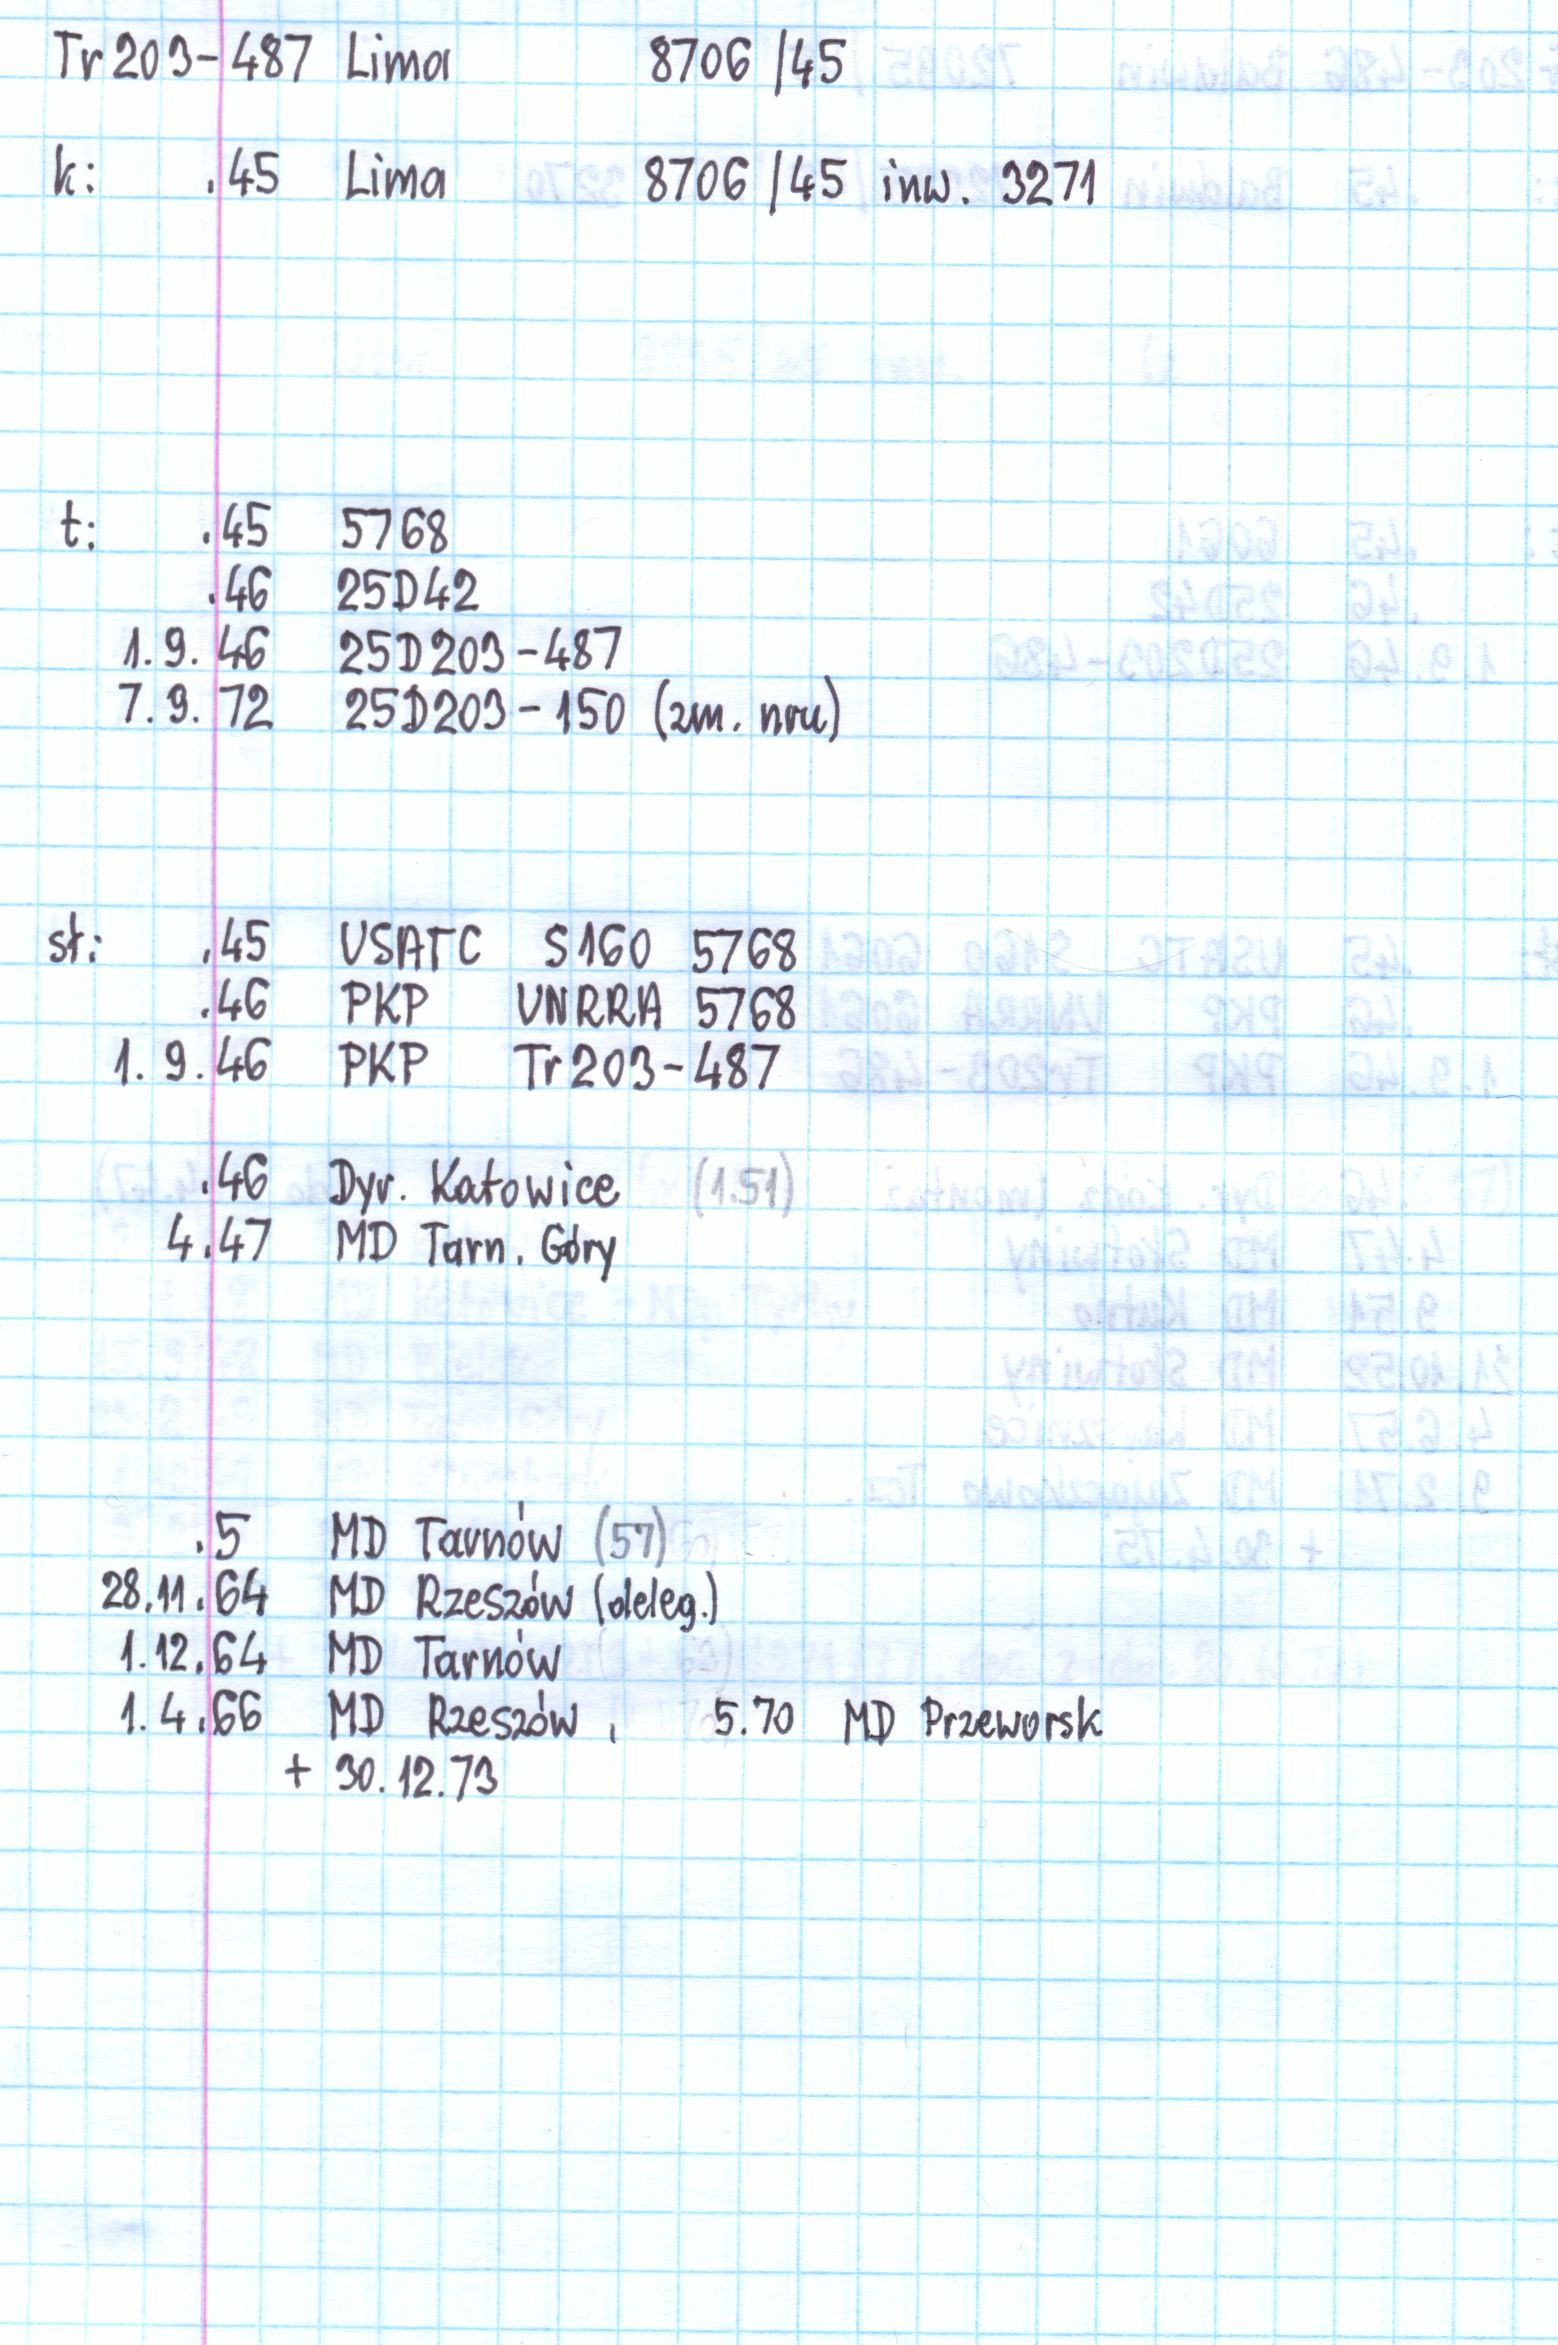 Tr203-487 Lima 8706/45
k: .45 Lima 8706/45 inw. 3271
t: .45 5768
.46 25D42
1.9.46 25D203-487
7.9.72 25D203-150 (zm. nru)
st: .45 USATC S160 5768
.46 PKP UNRRA 5768
1.9.46 PKP Tr203-487
.46 Dyr. Katowice (1.51)
4.47 MD Tarn. Góry
.5 MD Tarnów (57)
28.11.64 MD Rzeszów (deleg.)
1.12.64 MD Tarnów
1.4.66 MD Rzeszów, 5.70 MD Przeworsk
+ 30.12.73